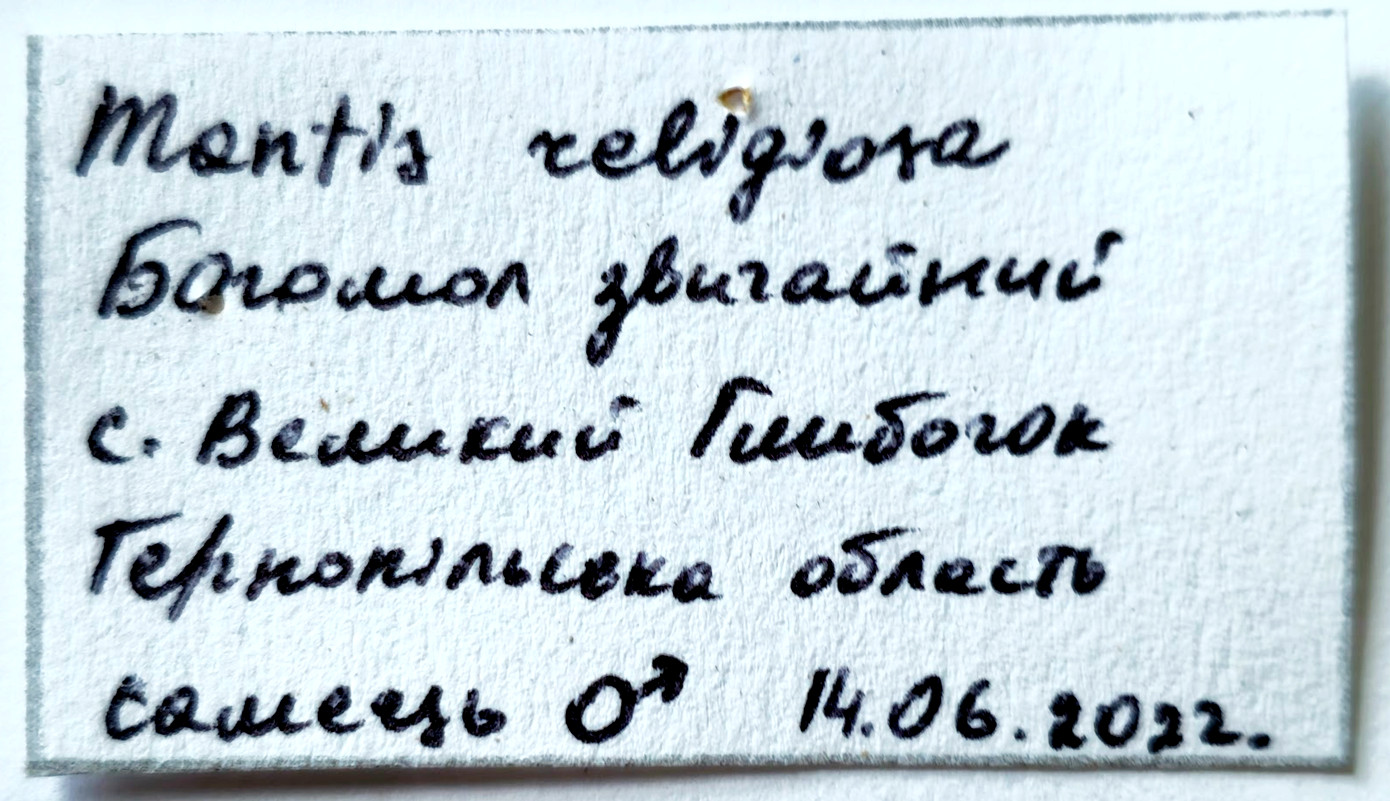 Mantis religiosa
Богомол звичайний
с. Великий Глибочок
Тернопільська область
самець ♂ 14.06.2022.